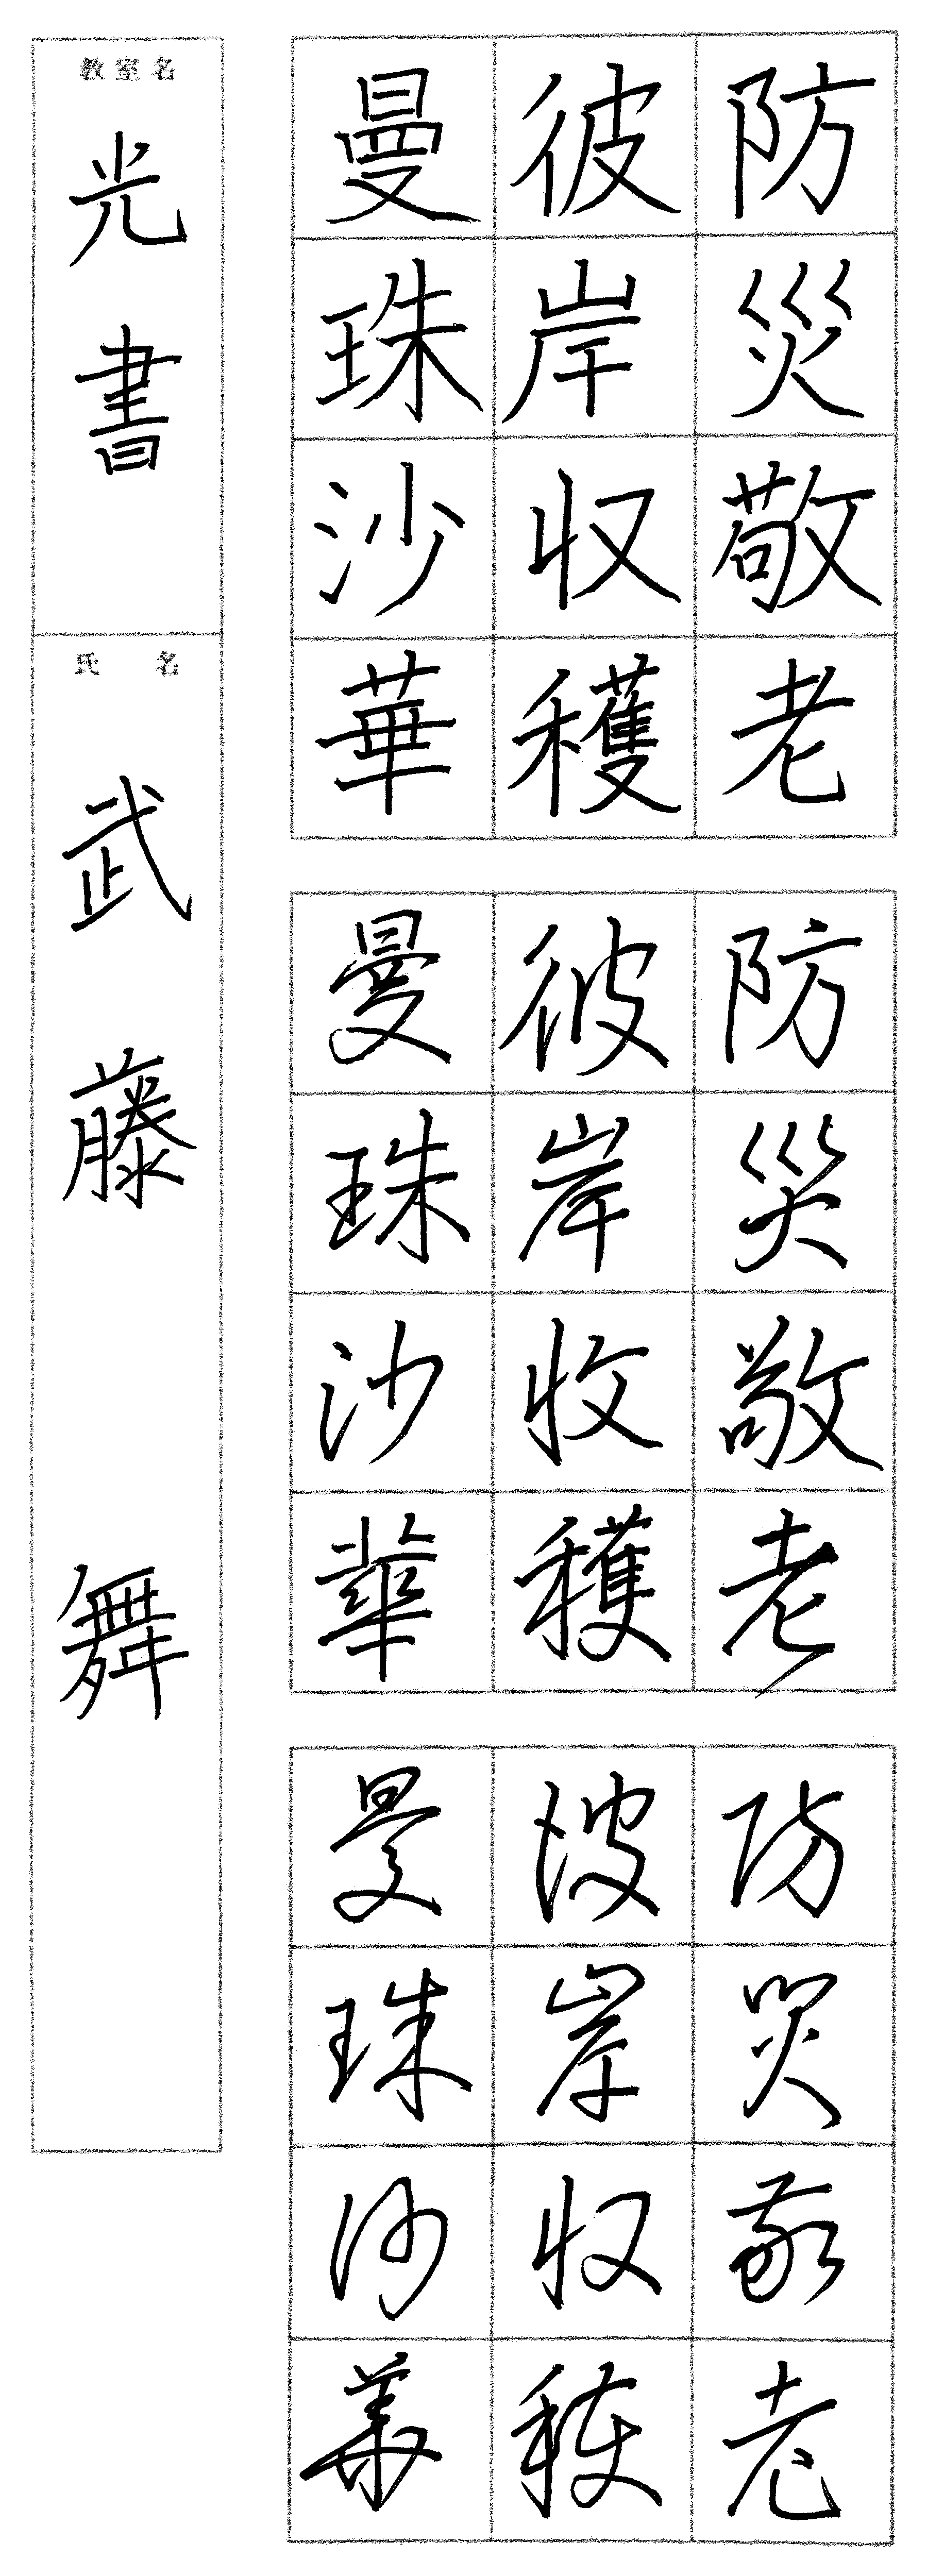 防災敬老
彼岸収穫
曼珠沙華
防災敬老
彼岸收穫
曼珠沙華
防災敬老
彼岸収穫
曼珠沙華
教室名
光書
氏名
武藤舞